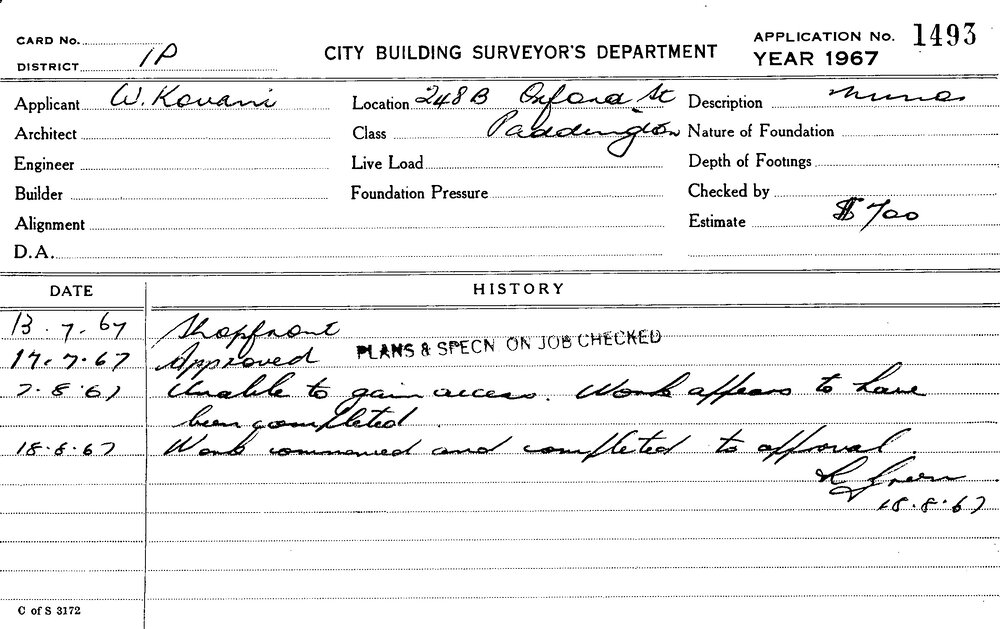 CARD No.
DISTRICT 1P
CITY BUILDING SURVEYOR'S DEPARTMENT
APPLICATION No. 1493
YEAR 1967
Applicant W. Kovani
Location 248B Oxford St
Description
Architect
Class Paddington
Nature of Foundation
Engineer
Live Load
Depth of Footings
Builder
Foundation Pressure
Checked by
Alignment
Estimate $700
D.A.
DATE HISTORY
13.7.67 Shopfront
17.7.67 Approved PLANS & SPECN ON JOB CHECKED
7.8.67 Unable to gain access. Work appears to have
been completed.
18.8.67 Work commenced and completed to approval.
Green
18.8.67
C of S 3172